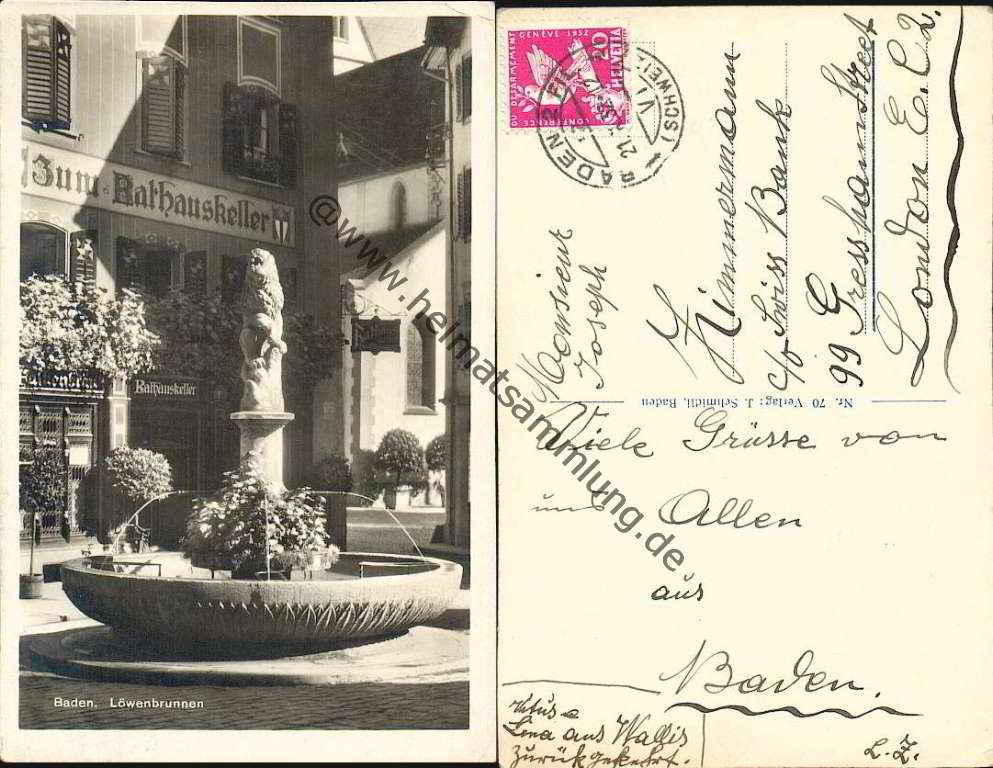 Zum Rathauskeller
Rathauskeller
Baden. Löwenbrunnen
@www.heimatsammlung.de
CONFÉRENCE DU DÉSARMEMENT GENÈVE 1932
HELVETIA
20
BADEN 2
(SCHWEIZ)
21. VI.
Monsieur
Joseph
Zimmermann
c/o Swiss Bank
99 Gresham Street
London E.C.2.
Nr. 70 Verlag: J. Schmidli, Baden
Viele Grüsse von
und Allen
aus
Baden.
L. Z.
Vitus &
Lena aus Wallis
zurückgekehrt.